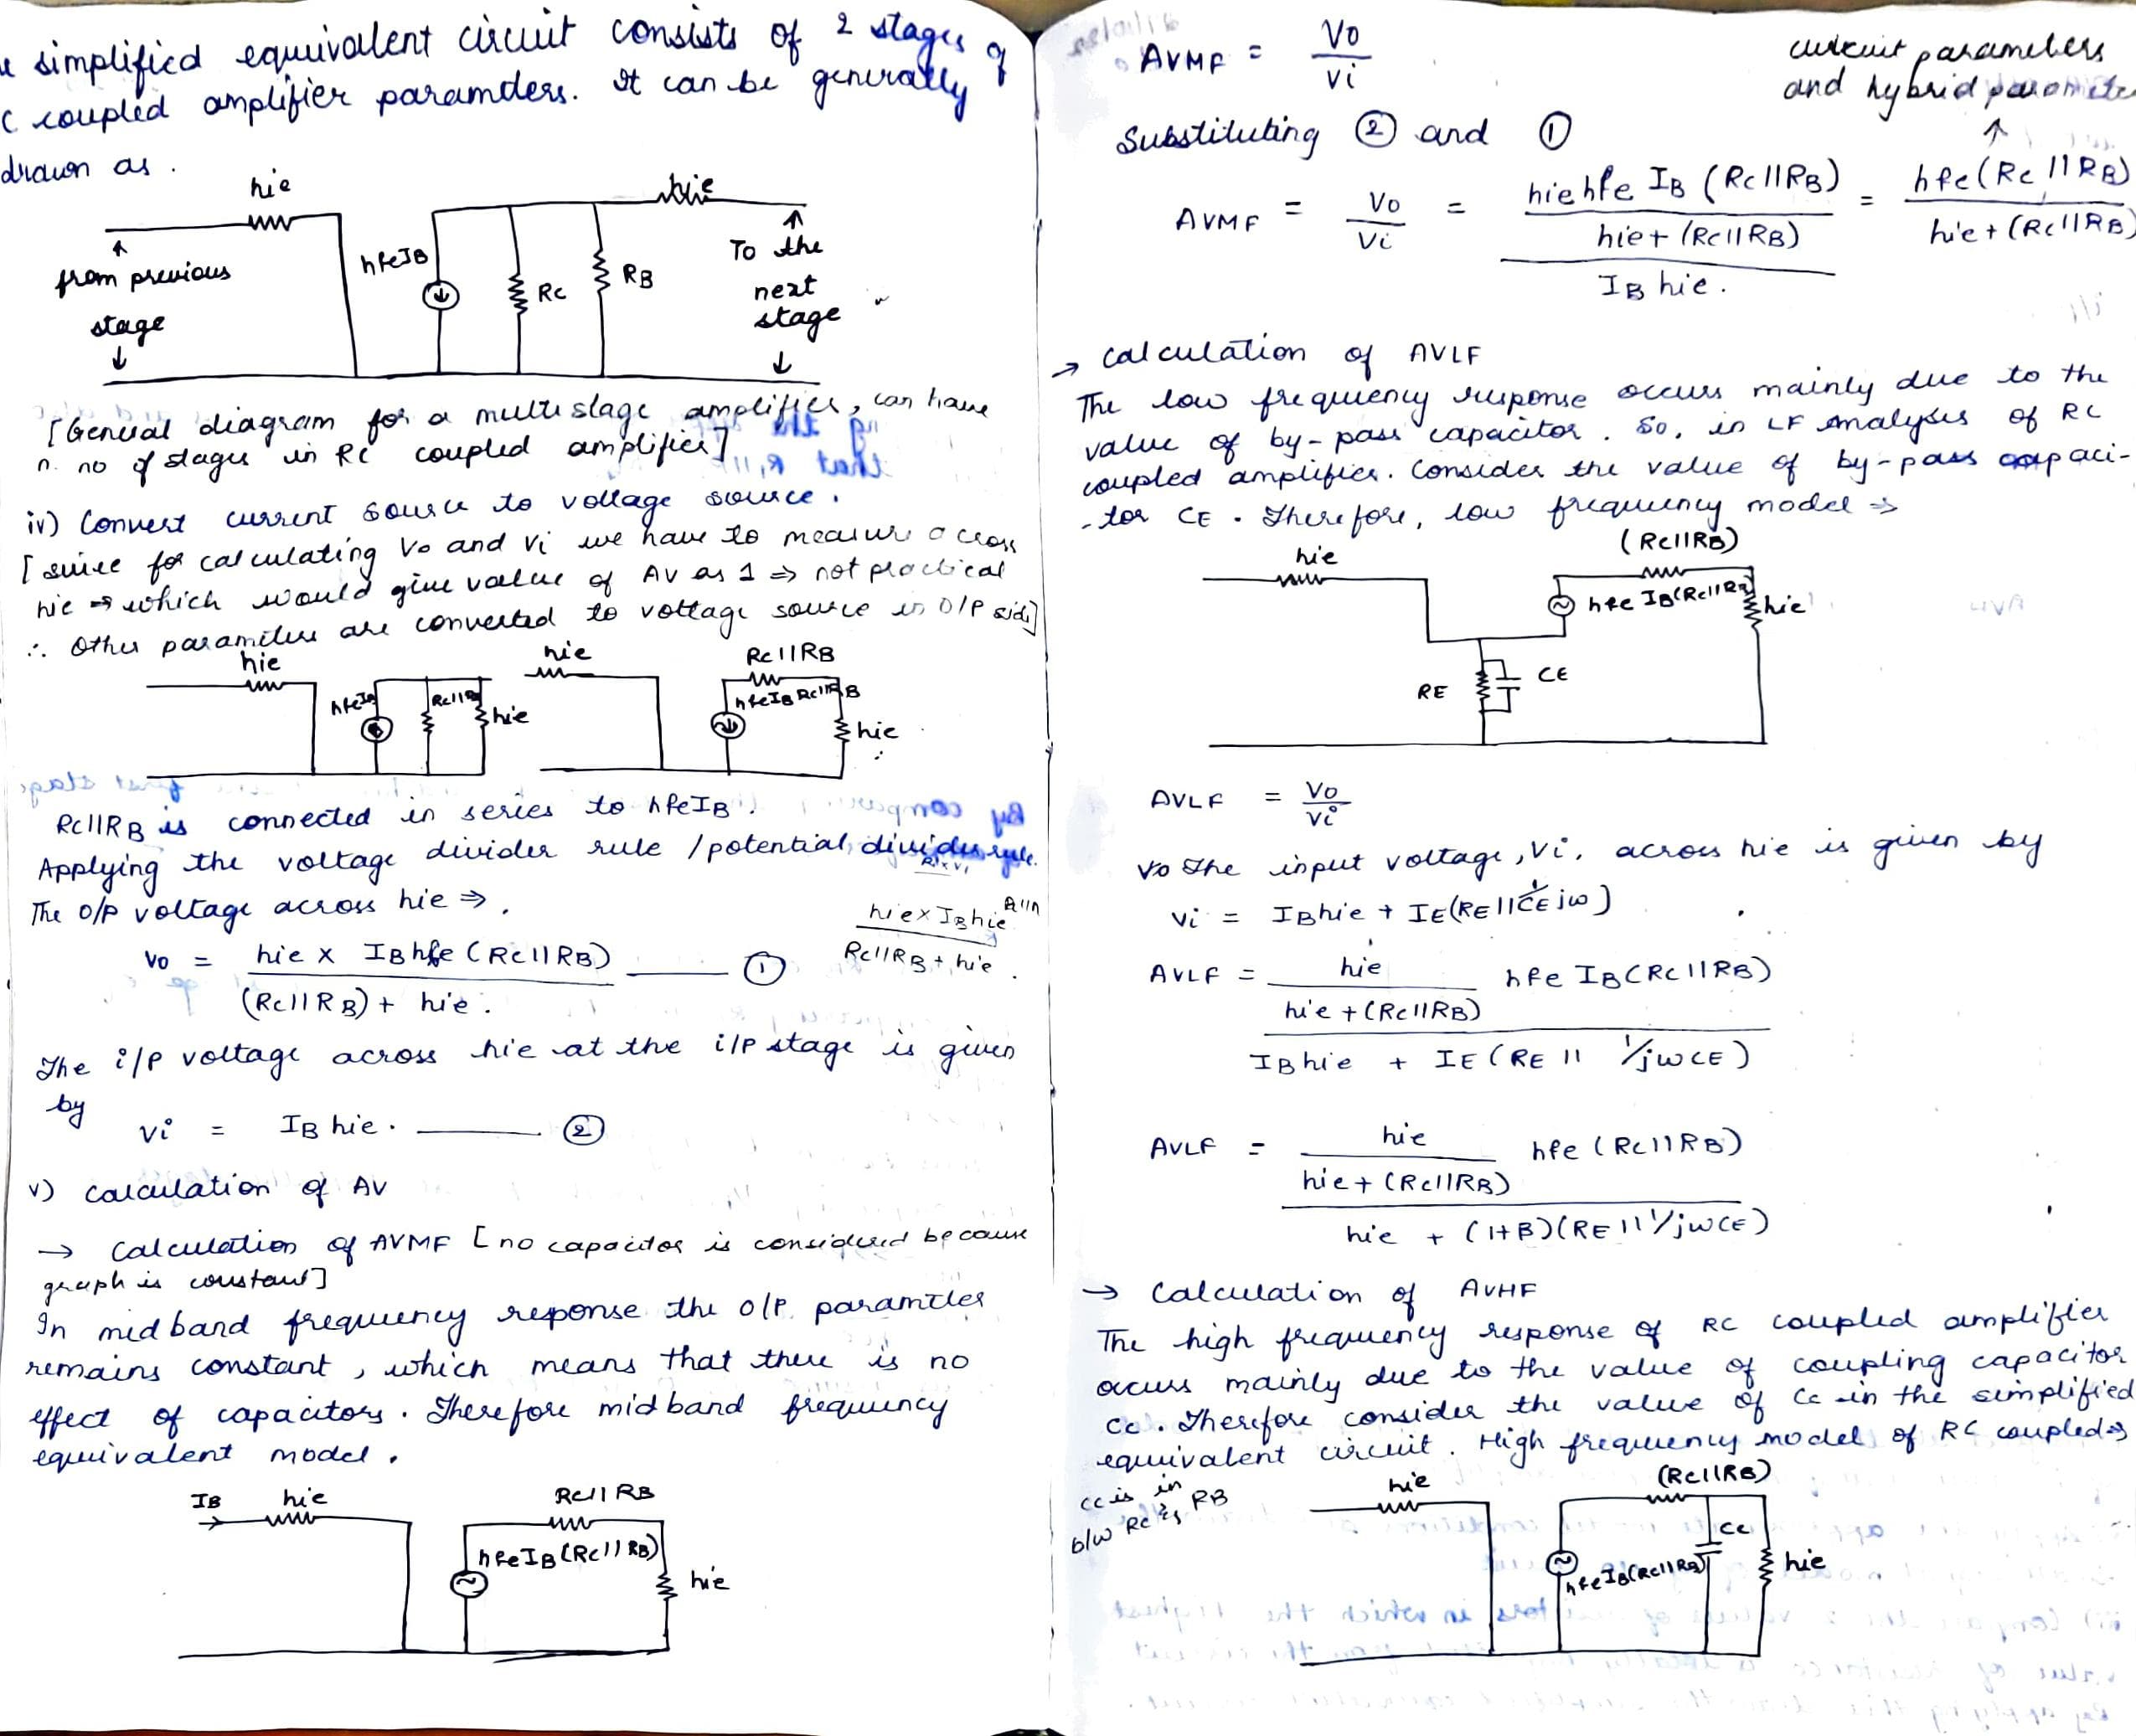 simplified equivalent circuit consists of 2 stages of
C coupled amplifier paramders. It can be generally
drawn as.
hie
hie
hfeIB
Rc
RB
from previous
stage
To the
next
stage
[General diagram for a multistage amplifier, can have
n. no of stages in RC coupled amplifier]
iv) Convert current source to voltage source.
[since for calculating Vo and Vi we have to measure across
hie which would give value of AV as 1 ⇒ not practical
∴ Other parameters are converted to voltage source in O/P side]
hie
hfeIB
Rc||RB
hie
hie
Rc||RB
hfeIB Rc||RB
hie
Rc||RB is connected in series to hfeIB.
Applying the voltage divider rule / potential divider rule.
The o/p voltage across hie ⇒
hie x IBhie
Rc||RB + hie
Vo = hie x IB hfe (Rc||RB) / (Rc||RB) + hie. ——— ①
The i/p voltage across hie at the i/p stage is given
by
Vi = IB hie. ——— ②
v) calculation of AV
→ Calculation of AVMF [no capacitor is considered because
graph is constant]
In midband frequency response the o/p parameter
remains constant, which means that there is no
effect of capacitors. Therefore midband frequency
equivalent model.
IB
hie
Rc|| RB
hfeIB (Rc|| RB)
hie
AVMF = Vo / Vi
circuit parameters
and hybrid parameter
↑
Substituting ② and ①
AVMF = Vo / Vi = hie hfe IB (Rc||RB) / hie + (Rc||RB) / IB hie. = hfe (Rc||RB) / hie + (Rc||RB)
→ Calculation of AVLF
The low frequency response occurs mainly due to the
value of by-pass capacitor. So, in LF analyses of RC
coupled amplifier. Consider the value of by-pass capaci-
-tor CE. Therefore, low frequency model ⇒
hie
(Rc||RB)
hfe IB(Rc||RB)
hie
RE
CE
AVLF = Vo / Vi
Vo The input voltage, Vi, across hie is given by
Vi = IBhie + IE(RE||1/CEjω)
AVLF = hie / hie + (Rc||RB) hfe IB (Rc||RB) / IBhie + IE (RE || 1/jωCE)
AVLF = hie / hie + (Rc||RB) hfe (Rc||RB) / hie + (1+B)(RE||1/jωCE)
→ Calculation of AVHF
The high frequency response of RC coupled amplifier
occurs mainly due to the value of coupling capacitor
Cc. Therefore consider the value of Cc in the simplified
equivalent circuit. High frequency model of RC coupled ⇒
Cc is in
b/w Rc & RB
hie
(Rc||RB)
Cc
hfeIB(Rc||RB)
hie